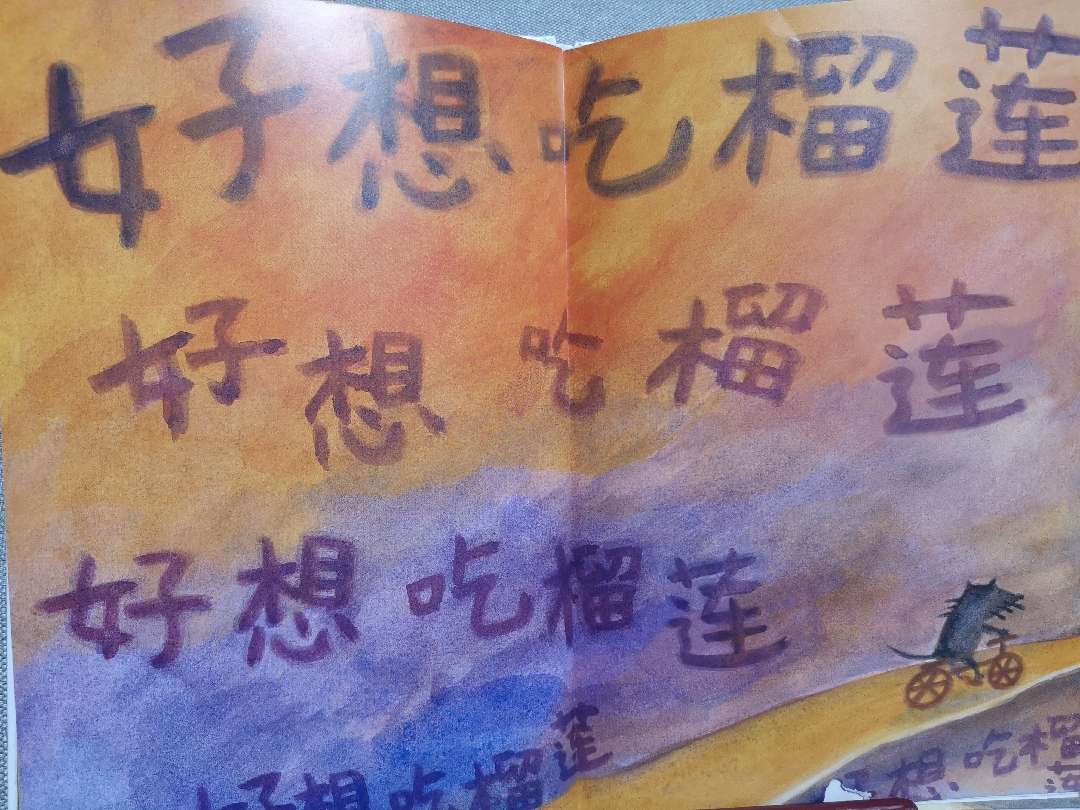 好想吃榴莲
好想吃榴莲
好想吃榴莲
好想吃榴莲
想吃榴莲